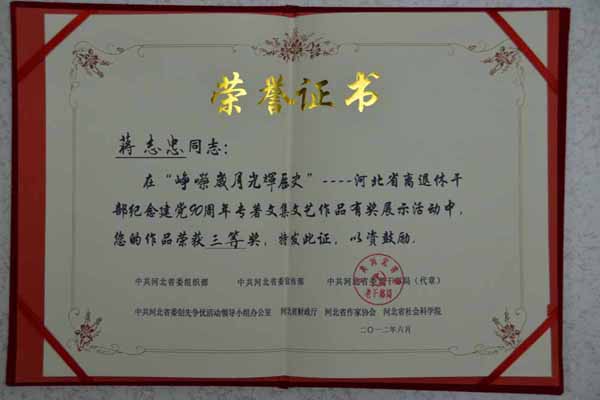 荣誉证书
蒋志忠同志：
在“峥嵘歲月光輝历史”----河北省离退休干
部纪念建党90周年专著文集文艺作品有奖展示活动中，
您的作品荣获三等奖，特发此证，以资鼓励。
中共河北省委组织部 中共河北省委宣传部 中共河北省委老干部局（代章）
中共河北省委创先争优活动领导小组办公室 河北省财政厅 河北省作家协会 河北省社会科学院
二〇一二年六月